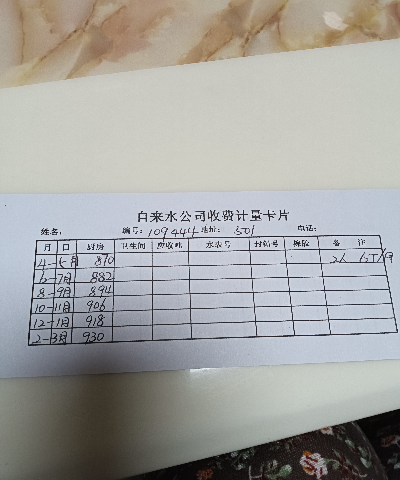 自来水公司收费计量卡片
姓名: 编号: 109444 地址: 501 电话:
月 口 厨房 卫生间 应收吨 水表号 封铅号 换胶 备 注
4-5月 870
6-7月 882
8-9月 894
10-11月 906
12-1月 918
2-3月 930